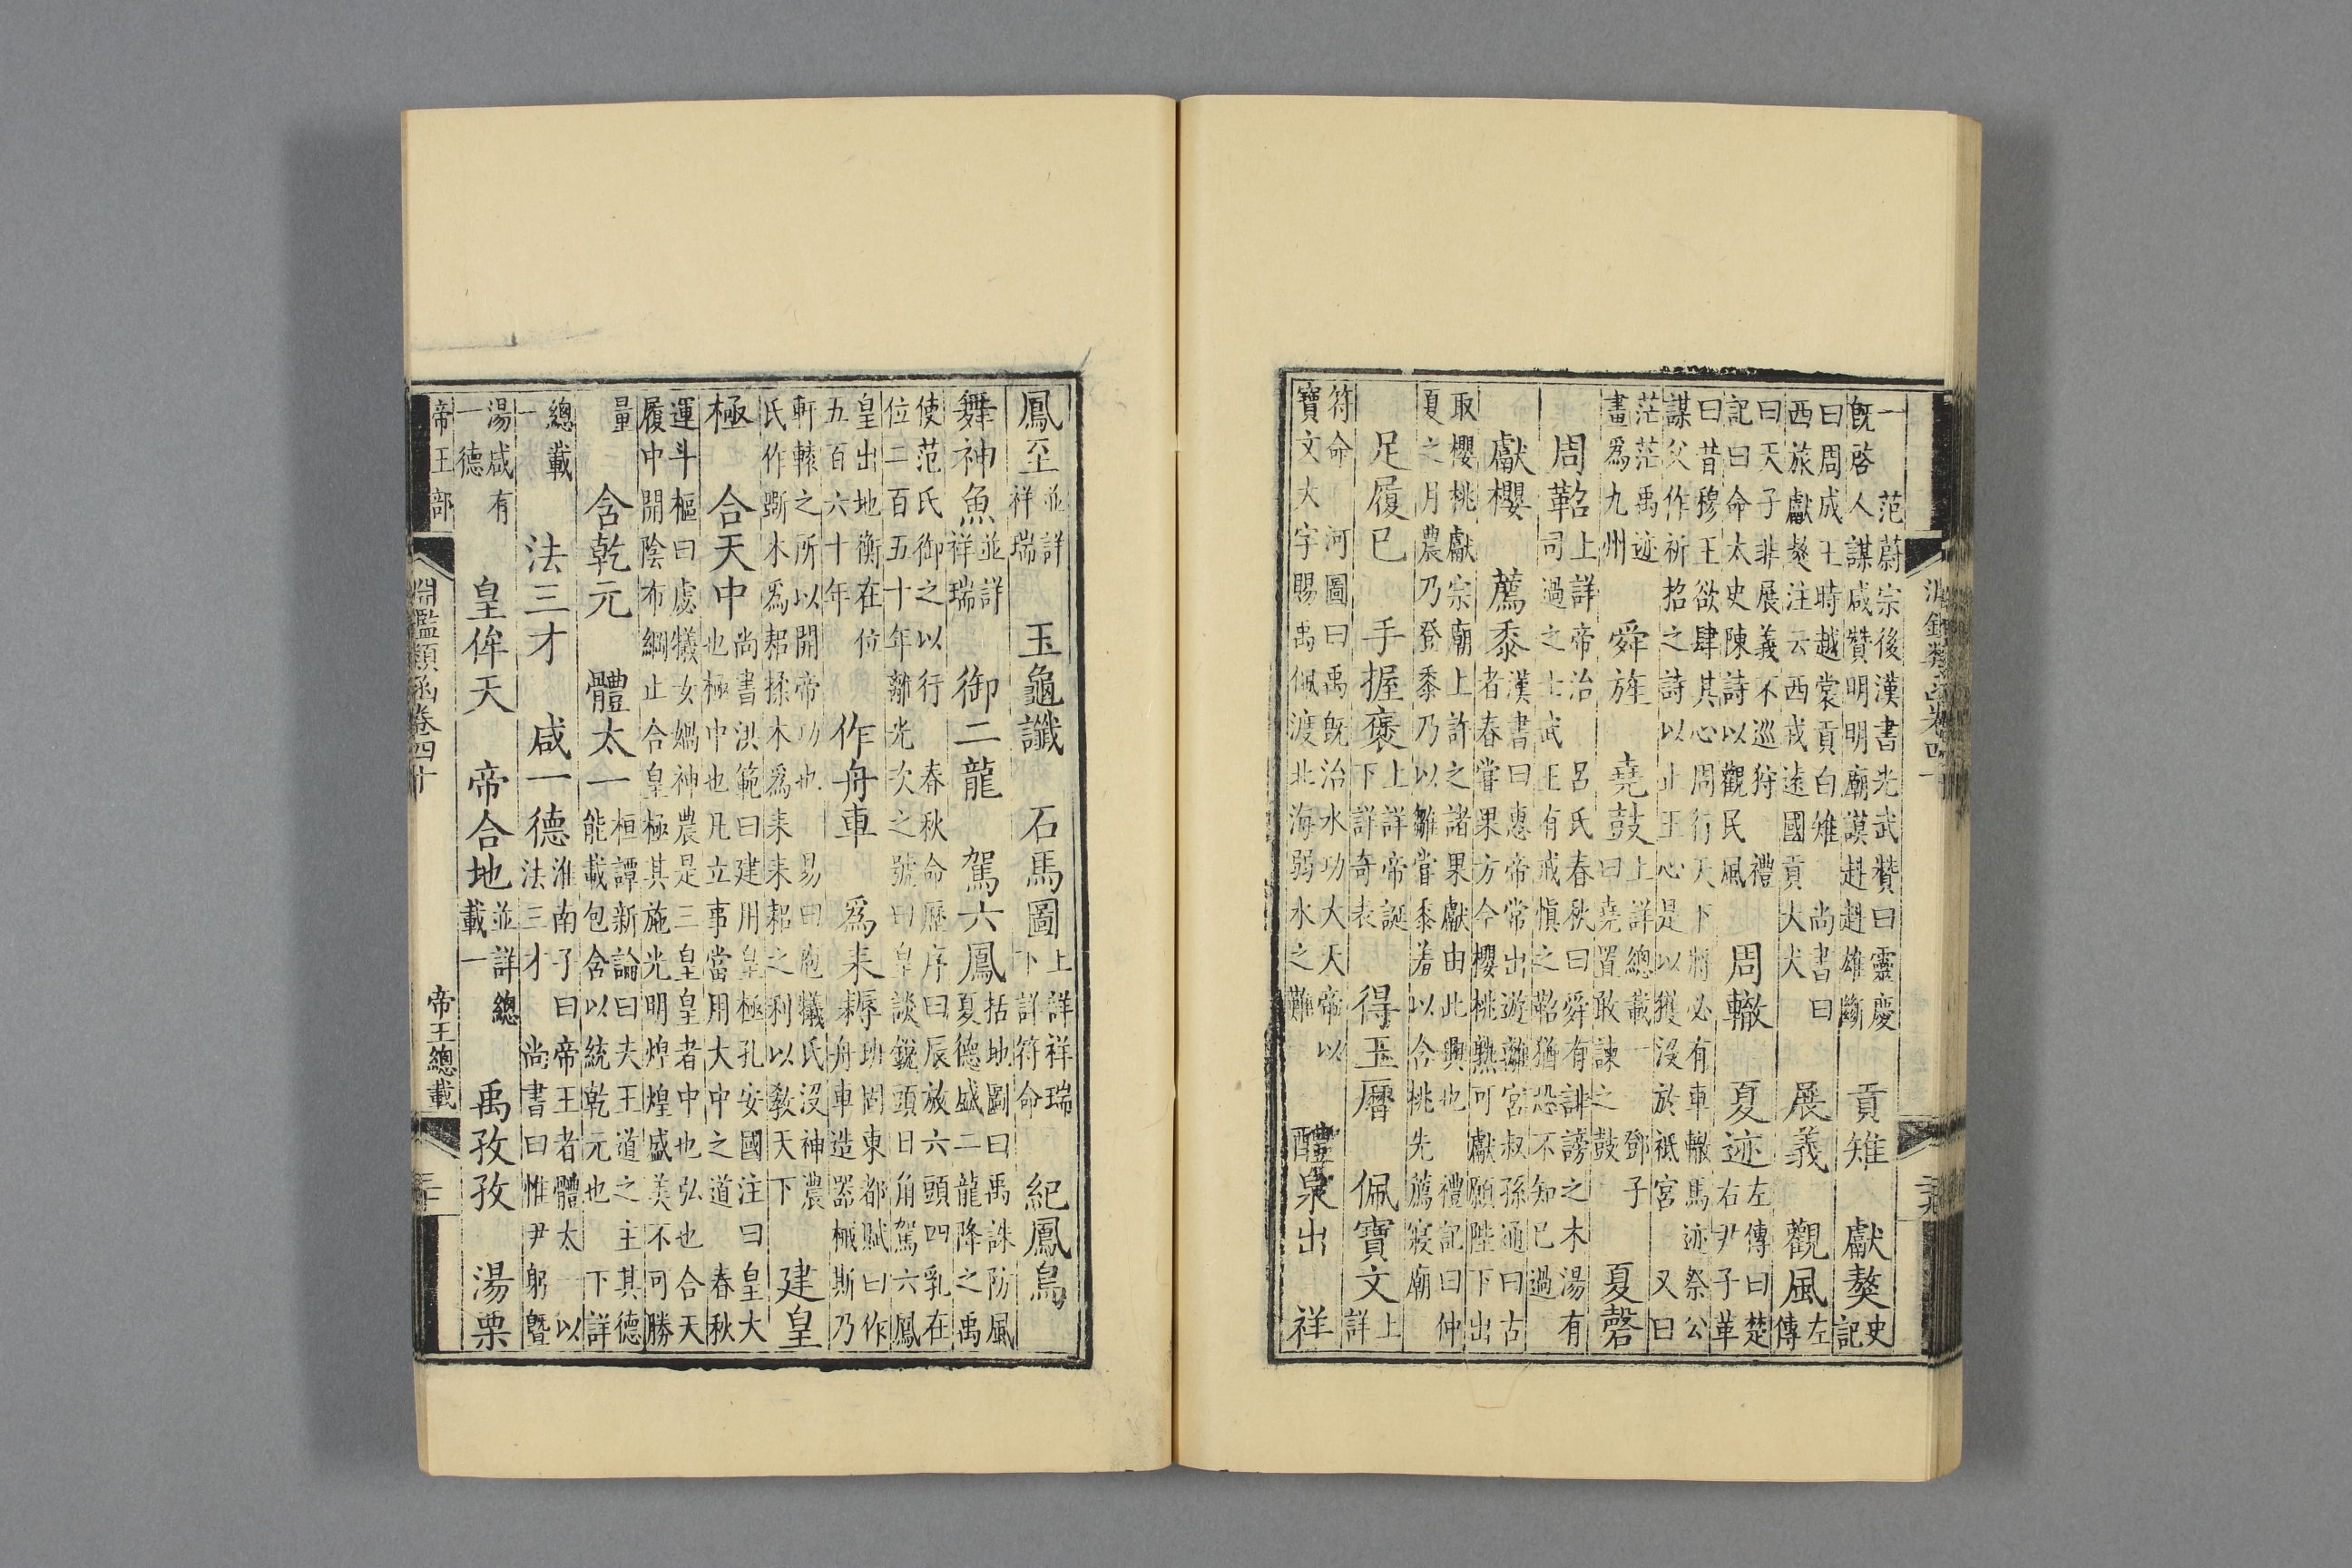 淵鑑類函卷四十
一　范蔚宗後漢書光武贊曰靈慶
既啓人謀咸贊明明廟謨赳赳雄斷
貢雉　獻獒
史
記
曰周成王時越裳貢白雉　尚書曰
西旅獻獒注云西戎遠國貢大犬
展義　觀風
左
傳
曰天子非展義不巡狩　禮
記曰命太史陳詩以觀民風
周轍　夏迹
左傳曰楚
右尹子革
曰昔穆王欲肆其心周行天下將必有車轍馬迹祭公
謀父作祈招之詩以止王心是以獲沒於祗宮　又曰
茫茫禹迹
畫爲九州
舜旌　堯鼓
上詳總載一　鄧子
曰堯置敢諫之鼓
夏磬
周鞀
上詳帝治　呂氏春秋曰舜有誹謗之木湯有
司過之士武王有戒慎之鞀猶恐不知己過
獻櫻　薦黍
漢書曰惠帝常出遊離宮叔孫通曰古
者春嘗果方今櫻桃熟可獻願陛下出
取櫻桃獻宗廟上許之諸果獻由此興也　禮記曰仲
夏之月農乃登黍乃以雛嘗黍羞以含桃先薦寢廟
足履巳　手握褒
上詳帝誕
下詳奇表
得玉曆　佩寶文
上
詳
符命　河圖曰禹既治水功大天帝以
寶文大字賜禹佩渡北海弱水之難
醴泉出　祥
鳳至
並詳
祥瑞
玉龜讖　石馬圖
上詳祥瑞
下詳符命
紀鳳鳥
舞神魚
並詳
祥瑞
御二龍　駕六鳳
括地圖曰禹誅防風
夏德盛二龍降之禹
使范氏御之以行　春秋命歷序曰辰放六頭四乳在
位二百五十年離光次之號曰皇談銳頭日角駕六鳳
皇出地衡在位
五百六十年
作舟車　爲耒耨
班固東都賦曰作
舟車造器械斯乃
軒轅之所以開帝功也　易曰庖犧氏沒神農
氏作斲木爲耜揉木爲耒耒耜之利以教天下
建皇
極　合天中
尚書洪範曰建用皇極孔安國注曰皇大
也極中也凡立事當用大中之道　春秋
運斗樞曰虙犧女媧神農是三皇皇者中也弘也合天
履中開陰布綱止合皇極其施光明煌煌盛美不可勝
量
含乾元　體太一
桓譚新論曰夫王道之主其德
能載包含以統乾元也　下詳
總載
一
法三才　咸一德
淮南子曰帝王者體太一以
法三才　尚書曰惟尹躬暨
湯咸有
一德
皇侔天　帝合地
並詳總
載一
禹孜孜　湯栗
帝王部
淵鑑類函卷四十
帝王總載